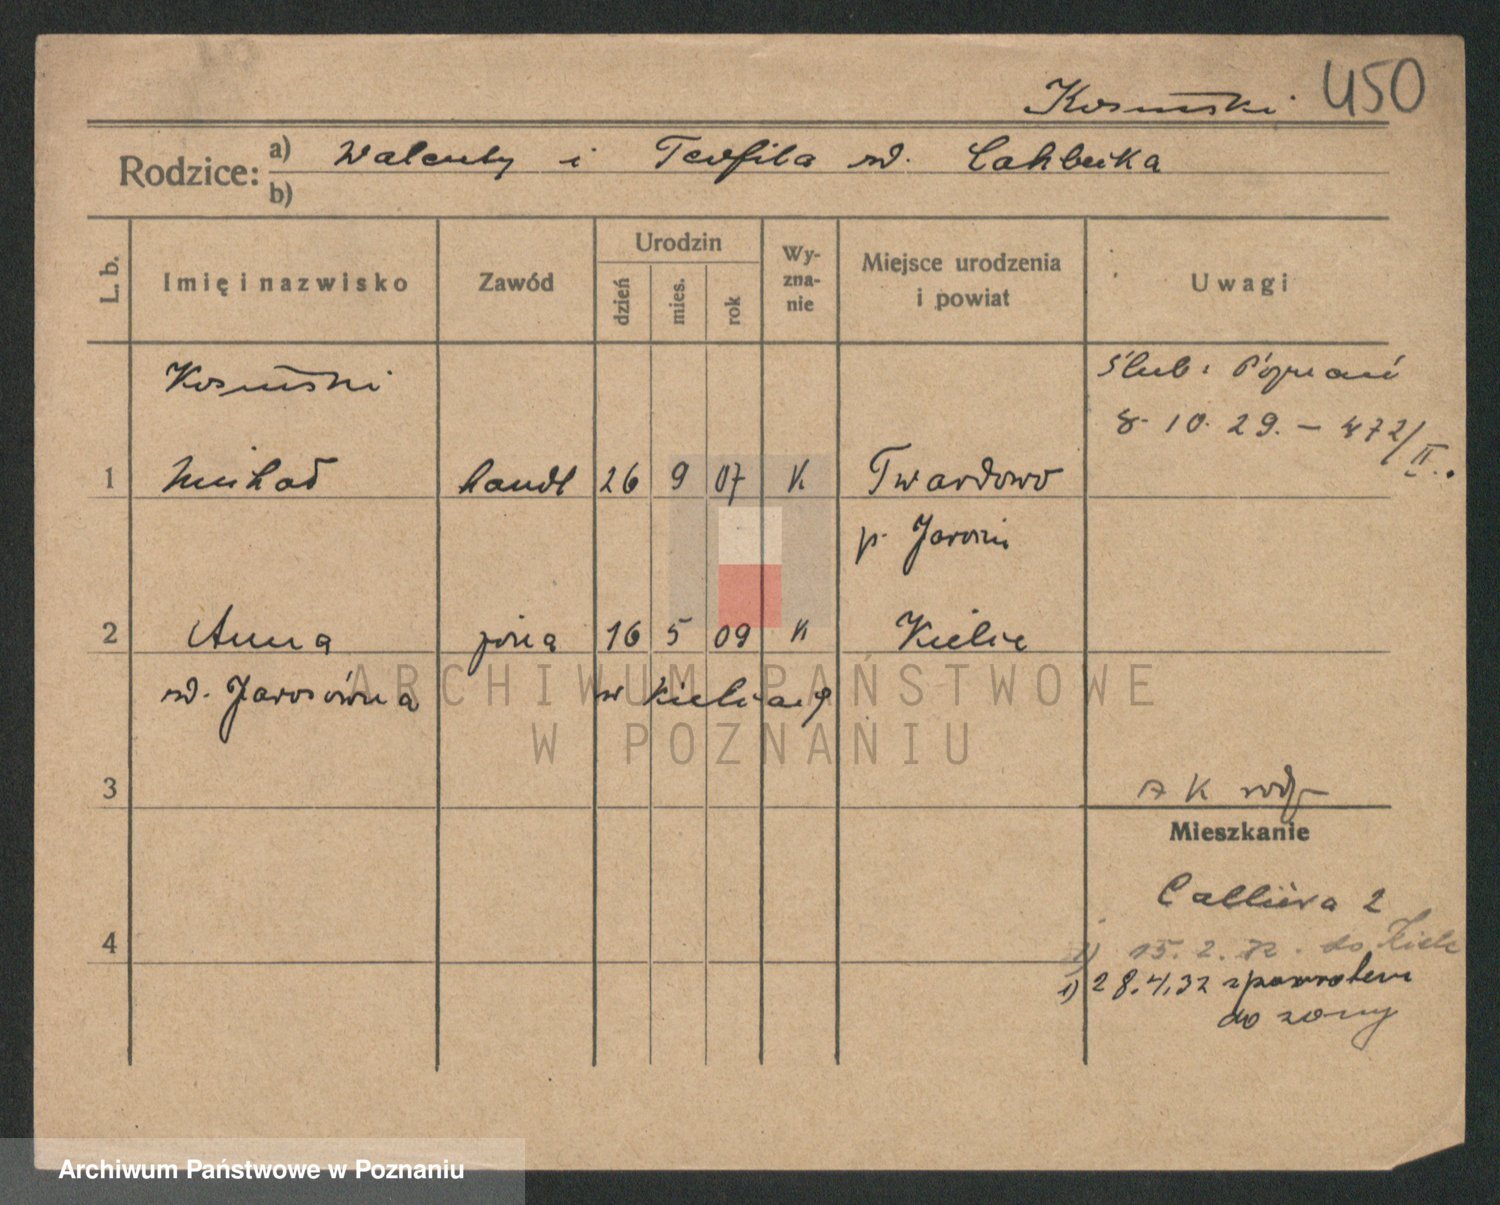 450
Kosiński
Rodzice: a) Walenty i Teofila
b)
L. b.
Imię i nazwisko
Zawód
Urodzin
dzień
mies.
rok
Wy-
zna-
nie
Miejsce urodzenia
i powiat
Uwagi
Kosiński
Ślub: Poznań
8. 10. 29. – 872/II.
1 Michał handl 26 9 07 K Twardowo
p. Jarocin
2 Anna żona 16 5 09 K Kielce
Jarosówna w Kielcach
3
A K rodz
Mieszkanie
Calliera 2
4
1) 15. 2. 32. do Kielc
1) 28.4.32 zpowrotem
do żony
ARCHIWUM PAŃSTWOWE
W POZNANIU
Archiwum Państwowe w Poznaniu